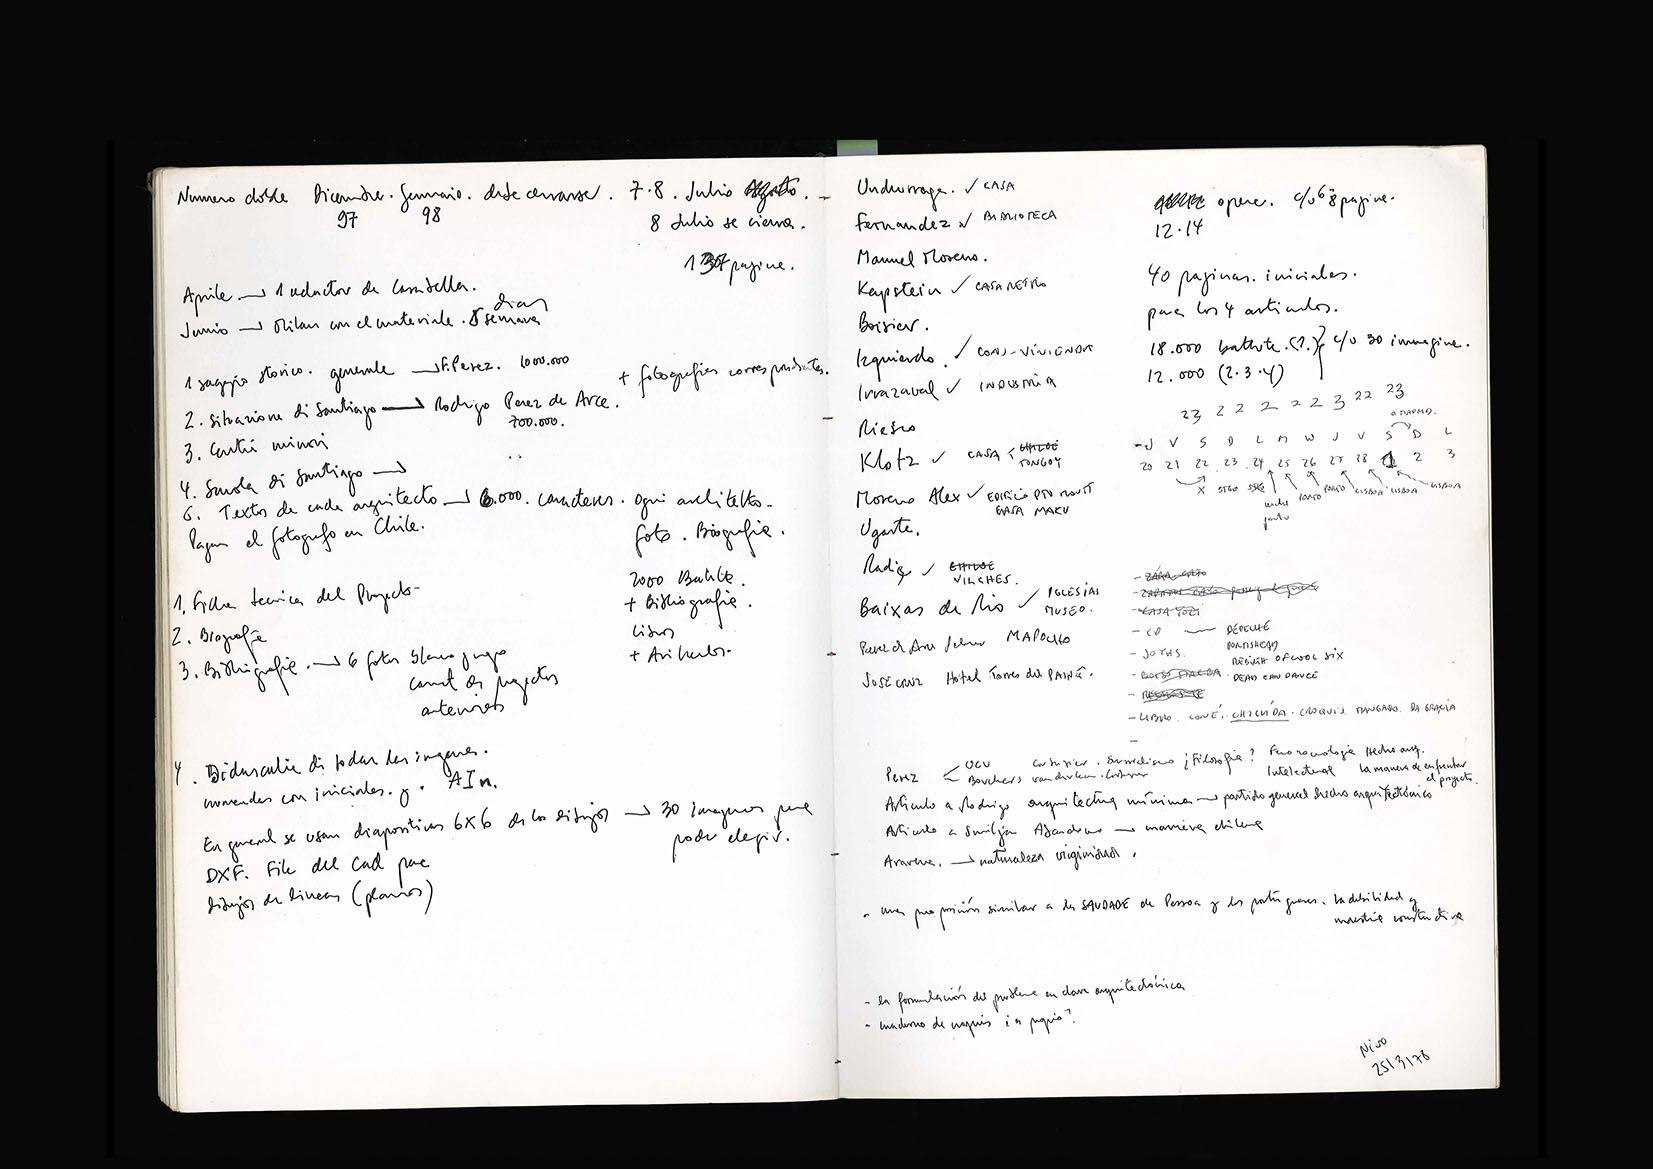 Numero doble Dicembre. Gennaio. debe cerrarse. 7.8. Julio
97 98
8 Julio se cierra.
pagine.
Aprile → 1 redactor de Casabella.
dias
Junio → Milan con el materiale. semana
1 saggio storico. generale → F. Perez. 1000.000
+ fotografias correspondientes.
2. Situazione di Santiago → Rodrigo Perez de Arce.
700.000.
3. minori
4. Scuola di Santiago →
5. Textos de cada arquitecto → 6.000. caracteres. ogni architetto.
Pagan el fotografo en Chile.
foto. Biografia.
2000 Battute.
1. Ficha tecnica del Proyecto.
+ Bibliografia.
2. Biografia
Libros
3. Bibliografia. → 6 fotos blanco y negro
+ Articulos.
carnet de proyectos
anteriores
4. Didascalie di todas las imagenes.
numeradas con iniciales. y. A1n.
En general se usan diapositivas 6x6 de los dibujos → 30 imagenes para
poder elegir.
DXF. File del Cad para
dibujos de lineas (planos)
Undurraga. ✓ CASA
Fernandez ✓ BIBLIOTECA
Manuel Moreno.
Kapstein ✓ CASA RETIRO
Boisier.
Izquierdo. ✓ CONJ-VIVIENDA
Irrazaval ✓ INDUSTRIA
Riesco
Klotz ✓ CASA CHILOE
TONGOY
Moreno Alex ✓ EDIFICIO PTO MONTT
CASA MAKU
Ugarte.
Radic ✓ CHILOE
VILCHES.
Baixas del Rio ✓ IGLESIAS
MUSEO.
Perez de Arce MAPOCHO
JOSE CRUZ Hotel Torres del PAINE.
opere. c/u 6 8 pagine.
12.14
40 paginas. iniciales.
para los 4 articulos.
18.000 battute. (1.) c/u 30 immagine.
12.000 (2.3.4)
23 22 2 22 2 3 22 23
a MADRID.
J V S D L M W J V S D L
20 21 22 23 24 25 26 27 28 1 2 3
X STGO PORTO PORTO LISBOA LISBOA LISBOA
noche
porto
- CASA YOZI
- CD — DEPECHE
PORTISHEAD
- JOYAS.
REBIRTH OF COOL SIX
DEAD CAN DANCE
- LIBRO. CHILLIDA. CROQUIS. MANGADO.
Perez
Borchers
¿Filosofia? Fenomenologia Hecho arq.
Intelectual la manera de enfrentar
el proyecto.
Articulo a Rodrigo arquitectura mínima → partido general hecho arquitectónico
Articulo a Smiljan Abandono → manera chilena
Aravena. → naturaleza virginidad.
- una proposición similar a la SAUDADE de Pessoa y los portugueses. la debilidad y
maestria constructiva
- la formulación del problema en clave arquitectónica
- cuaderno de croquis
Nivo
25/3/78